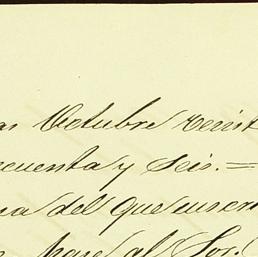 as Octubre veint
cuenta y seis. =
na del que suscri
Pase al Sor.